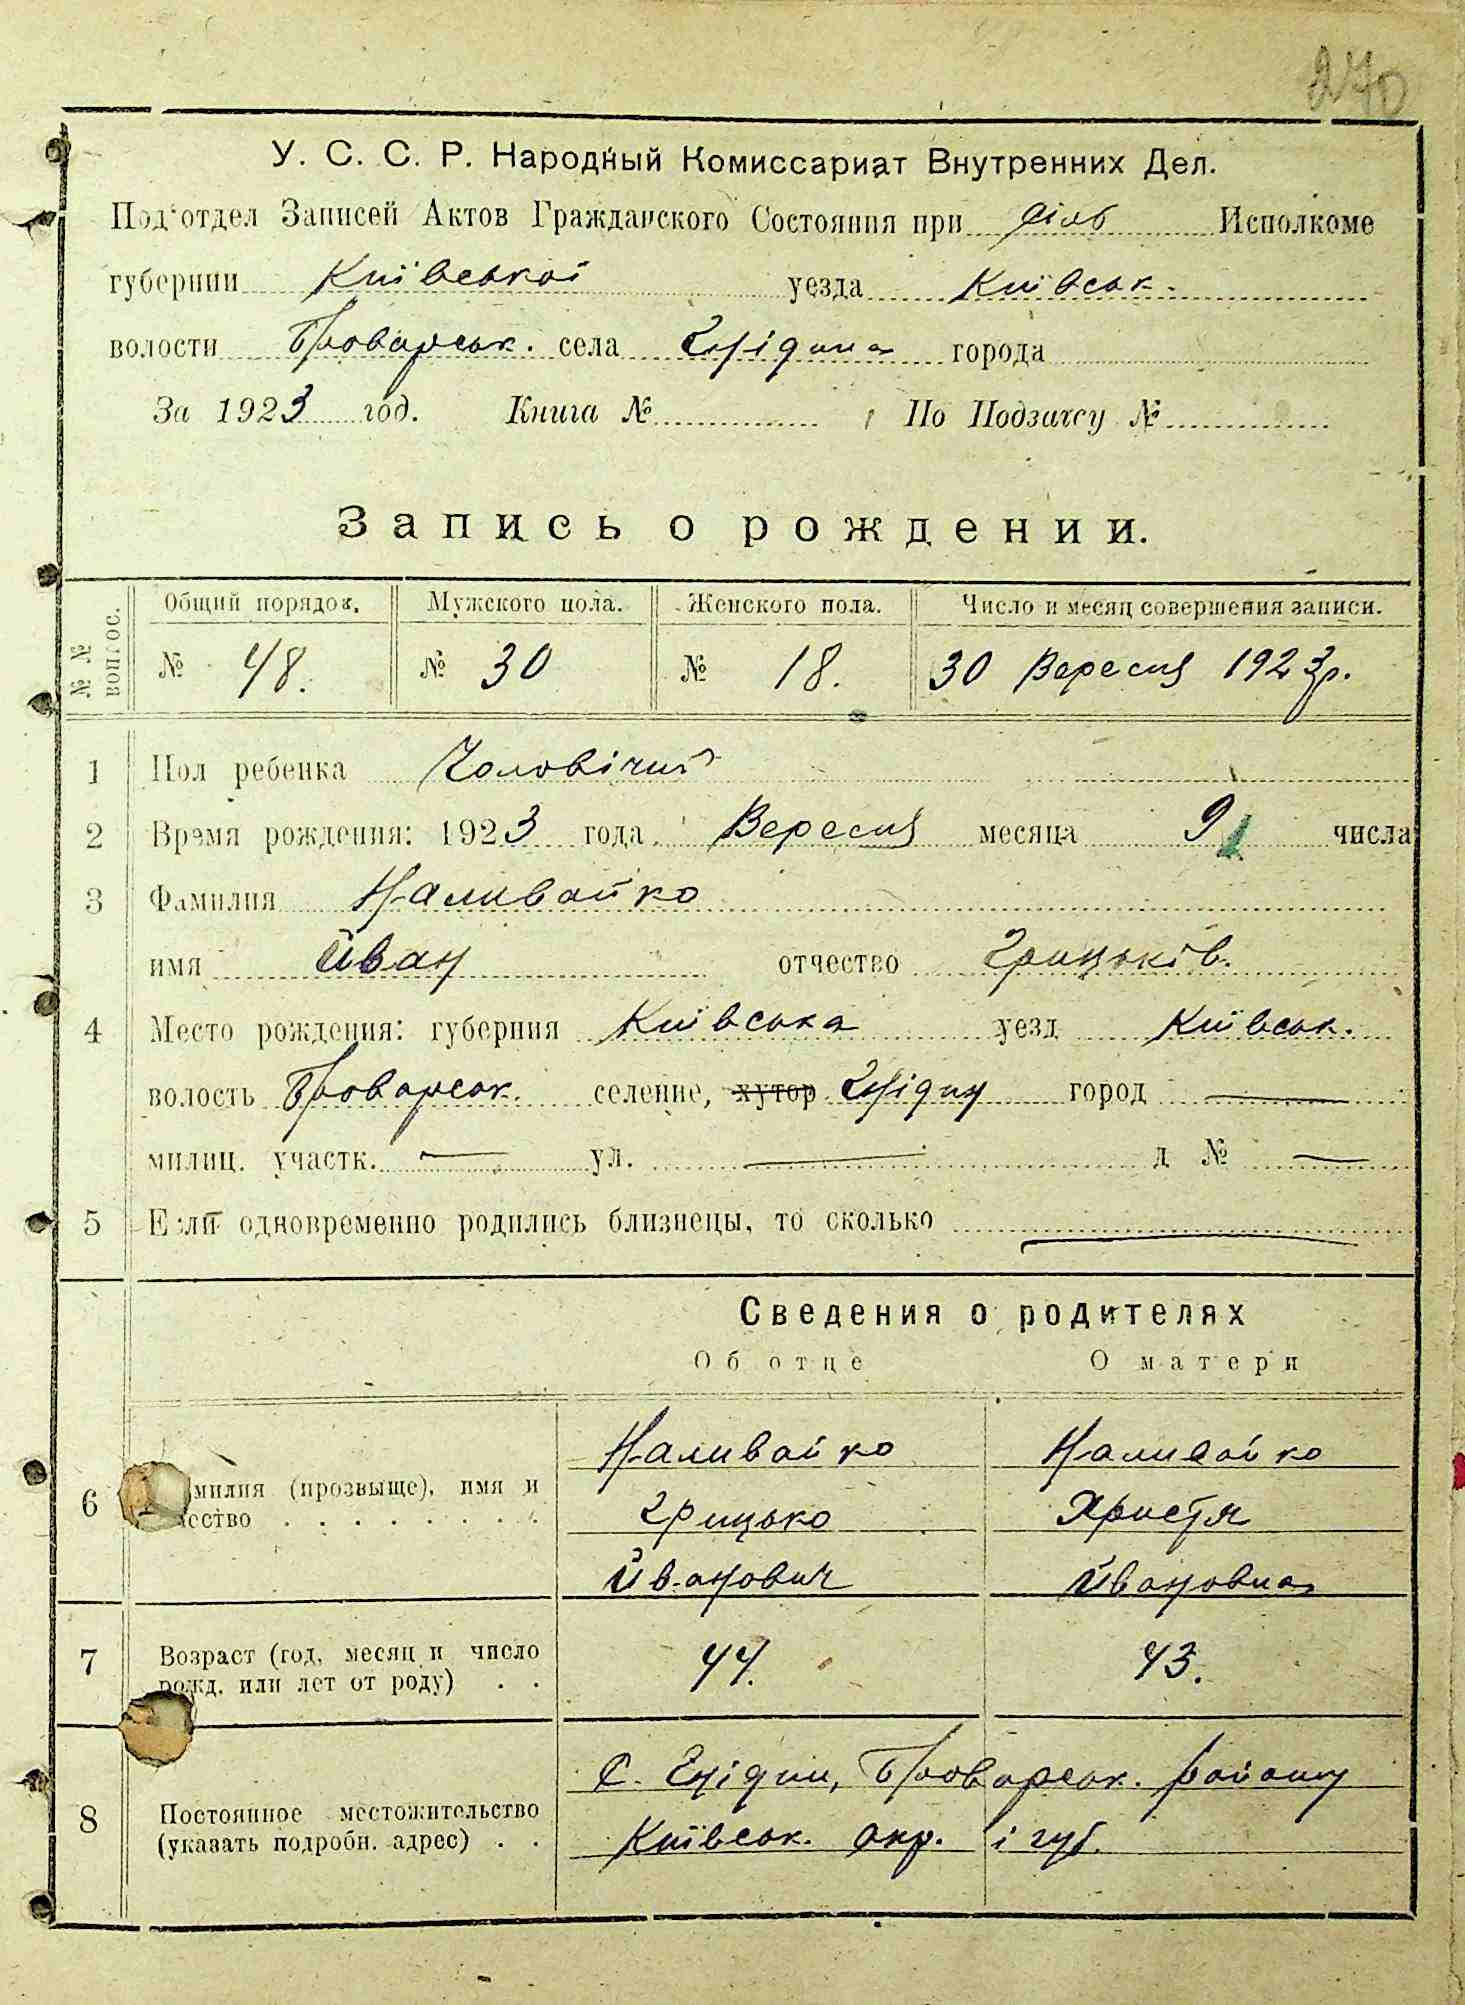 270
У. С. С. Р. Народный Комиссариат Внутренних Дел.
Под'отдел Записей Актов Гражданского Состояния при Сіль Исполкоме
губернии Київської уезда Київськ.
волости Броварськ. села города
За 1923 год. Книга № По Подзагсу №
Запись о рождении.
№ № вопрос. Общий порядок. Мужского пола. Женского пола. Число и месяц совершения записи.
№ 48. № 30 № 18. 30 Вересня 1923 р.
1 Пол ребенка Чоловічий
2 Время рождения: 1923 года Вересня месяца 9 числа
3 Фамилия Наливайко
имя Йван отчество Грицьків.
4 Место рождения: губерния Київська уезд Київськ.
волость Броварськ. селение, хутор город —
милиц. участк. — ул. — д № —
5 Если одновременно родились близнецы, то сколько —
Сведения о родителях
Об отце О матери
Наливайко Наливайко
6 милия (прозвыще), имя и Грицько Христя
ество . . . . . . . .
Йванович Йвановна
7 Возраст (год, месяц и число 44. 43.
рожд. или лет от роду) . .
С. Броварськ. району
8 Постоянное местожительство Київськ. окр. і губ.
(указать подробн. адрес) . .